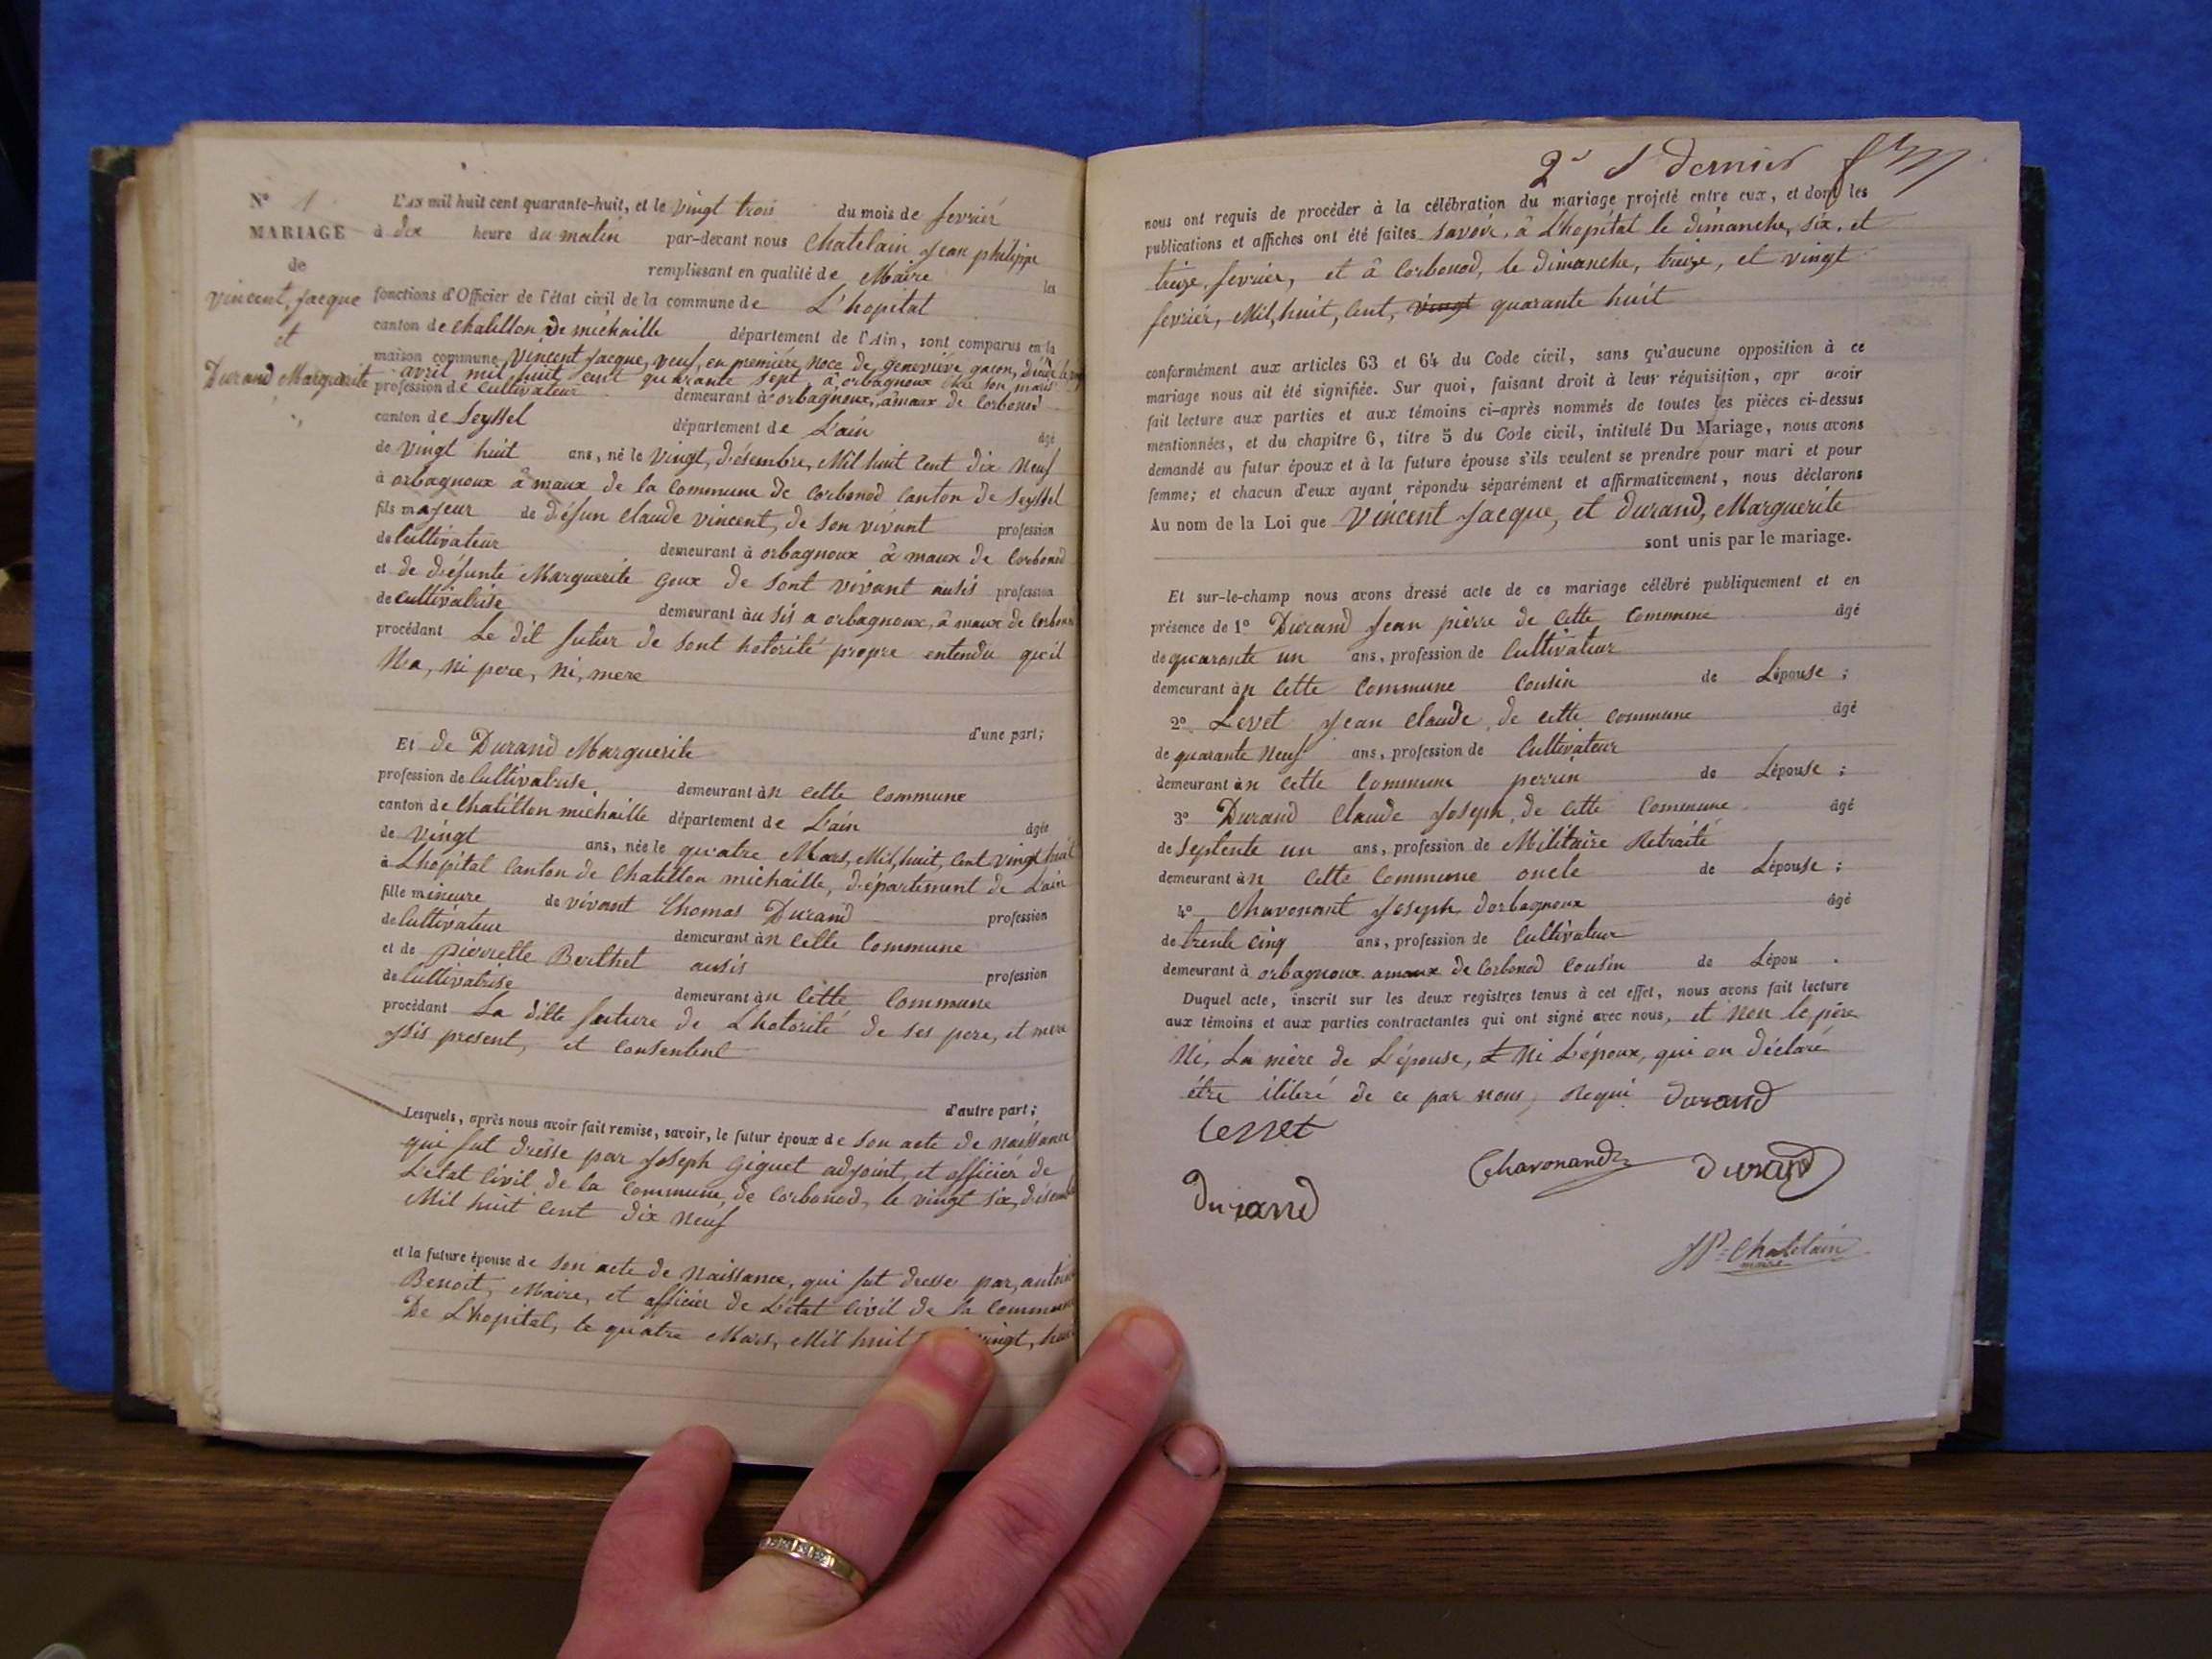 N° 1
MARIAGE
de
Vincent, Jacque
et
Durand Marguerite
L'AN mil huit cent quarante-huit, et le vingt trois du mois de fevrier
à dix heure du matin par-devant nous Chatelain Jean philippe
remplissant en qualité de Maire les
fonctions d'Officier de l'état civil de la commune de L'hopital
canton de Chatillon de michaille département de l'Ain, sont comparus en la
maison commune Vincent Jacque, veuf, en première noce de genevième gacon,
avril mil huit cent quarante sept, à orbagnoux son maris
profession de Cultivateur demeurant à orbagnoux, amaux de Corbonod
canton de Seyssel département de L'ain âgé
de vingt huit ans, né le vingt, désembre, Mil huit Cent dix Neuf
à orbagnoux à maux de la Commune de Corbonod Canton de Seyssel
fils majeur de défun Claude vincent, de Son vivant profession
de Cultivateur demeurant à orbagnoux à maux de Corbonod
et de défunte Marguerite goux de Sont vivant ausis profession
de Cultivatrise demeurant àu sis a orbagnoux, à maux de Corbonod
procédant Le dit futur de Sont hotorité propre entendu qu'il
N'a, Ni pere, Ni, mere
d'une part;
Et de Durand Marguerite
profession de Cultivatrise demeurant àn cette Commune
canton de Chatillon michaille département de L'ain âgée
de vingt ans, née le quatre Mars, Mil, huit, Cent vingt huit
à Lhopital Canton de Chatillon michaille, département de L'ain
fille mineure de vivant Thomas Durand profession
de Cultivateur demeurant àn cette Commune
et de pierrette Berthet ausis profession
de Cultivatrise demeurant àn Cette Commune
procédant La ditte future de Lhotorité de ses pere, et mere
issis present, et Consentent
d'autre part;
Lesquels, après nous avoir fait remise, savoir, le futur époux de Son acte de naissance
qui fut dressé par Joseph Giguet adjoint, et officier de
L'etat Civil de la Commune, de Corbonod, le vingt Six, désembre
Mil huit Cent dix neuf
et la future épouse de Son acte de Naissance, qui fut dresse par, antoine
Benoit, Maire, et officier de L'état Civil de la Commune
De Lhopital, le quatre Mars, Mil huit vingt, huit
2e & dernier
nous ont requis de procéder à la célébration du mariage projeté entre eux, et dont les
publications et affiches ont été faites Savoir, à Lhopital le dimanche, six, et
treize, fevrier, et à Corbonod, le dimanche, treize, et vingt
fevrier, Mil, huit, Cent, vingt quarante huit
conformément aux articles 63 et 64 du Code civil, sans qu'aucune opposition à ce
mariage nous ait été signifiée. Sur quoi, faisant droit à leur réquisition, apr avoir
fait lecture aux parties et aux témoins ci-après nommés de toutes les pièces ci-dessus
mentionnées, et du chapitre 6, titre 5 du Code civil, intitulé Du Mariage, nous avons
demandé au futur époux et à la future épouse s'ils veulent se prendre pour mari et pour
femme; et chacun d'eux ayant répondu séparément et affirmativement, nous déclarons
Au nom de la Loi que Vincent Jacque, et Durand, Marguerite
sont unis par le mariage.
Et sur-le-champ nous avons dressé acte de ce mariage célébré publiquement et en
présence de 1° Durand Jean pierre de Cette Commune âgé
de quarante un ans, profession de Cultivateur
demeurant àn Cette Commune Cousin de Lépouse ;
2° Levet Jean Claude, de cette commune âgé
de quarante Neuf ans, profession de Cultivateur
demeurant àn cette Commune perrin de Lépouse ;
3° Durand Claude Joseph, de Cette Commune âgé
de Septente un ans, profession de Militaire Retraité
demeurant àn Cette Commune oncle de Lépouse ;
4° Chavonant Joseph d'orbagnoux âgé
de trente cinq ans, profession de Cultivateur
demeurant à orbagnoux amaux de Corbonod Cousin de Lépou .
Duquel acte, inscrit sur les deux registres tenus à cet effet, nous avons fait lecture
aux témoins et aux parties contractantes qui ont signé avec nous, et Non le père
Ni, La mère de L'épouse, & Ni L'époux, qui on déclaré
être iliteré de ce par nous, Requi Durand
Levet
Chavonand Durand
Durand
JP. Chatelain
maire